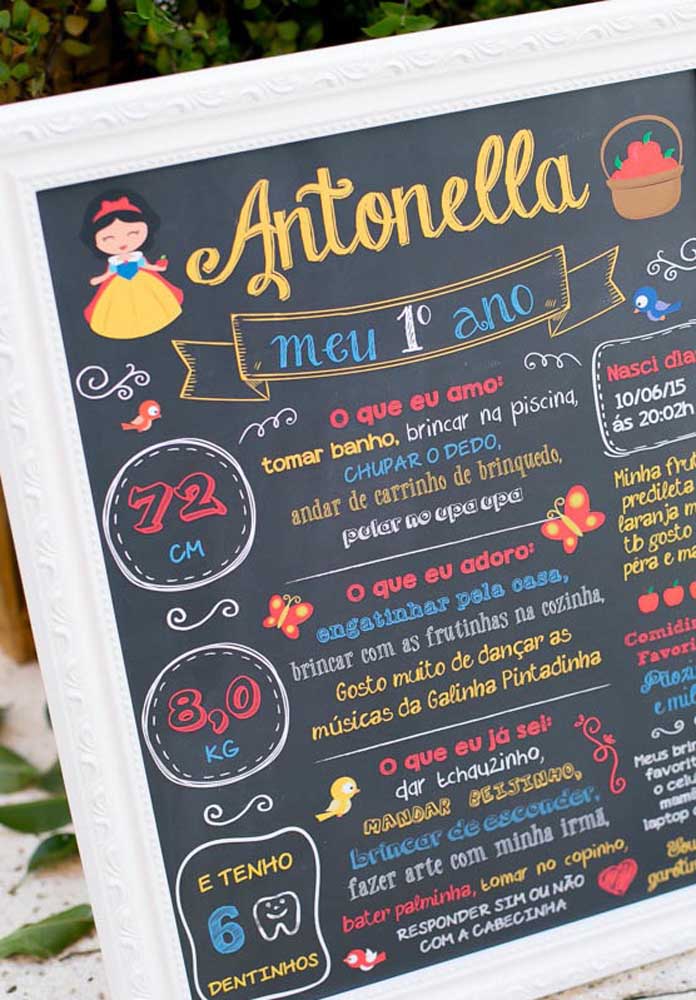 Antonella
meu 1º ano
72
CM
8,0
KG
E TENHO
6
DENTINHOS
O que eu amo:
tomar banho, brincar na piscina,
CHUPAR O DEDO,
andar de carrinho de brinquedo,
pular no upa upa
O que eu adoro:
engatinhar pela casa,
brincar com as frutinhas na cozinha,
Gosto muito de dançar as
músicas da Galinha Pintadinha
O que eu já sei:
dar tchauzinho,
MANDAR BEIJINHO,
brincar de esconder,
fazer arte com minha irmã,
bater palminha, tomar no copinho,
RESPONDER SIM OU NÃO
COM A CABECINHA
Nasci dia
10/06/15
ás 20:02h
Minha frut
predileta
laranja m
tb gosto
pêra e ma
Comidin
Favori
Pãoz
e mi
Meus brin
favorit
o cel
mam
laptop
Sou
garotin